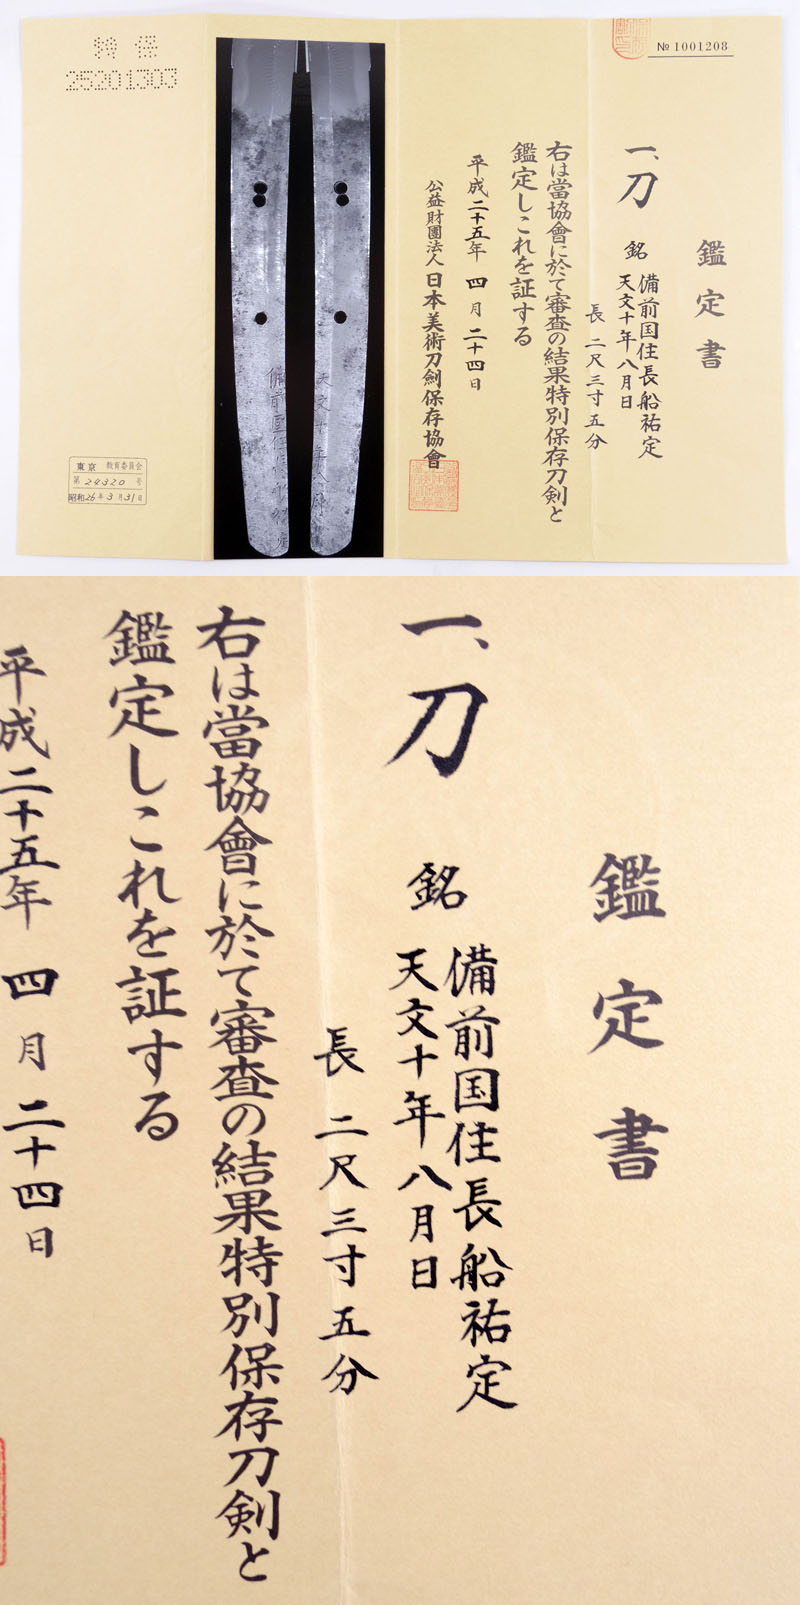 № 1001208
鑑定書
一、刀
銘 備前国住長船祐定
天文十年八月日
長 二尺三寸五分
右は當協會に於て審査の結果特別保存刀剣と
鑑定しこれを証する
平成二十五年 四月二十四日
公益財團法人 日本美術刀劍保存協會
特保
25201303
東京 教育委員会
第 24320 号
昭和26年3月31日
鑑定書
一、刀
銘 備前国住長船祐定
天文十年八月日
長 二尺三寸五分
右は當協會に於て審査の結果特別保存刀剣と
鑑定しこれを証する
平成二十五年 四月二十四日